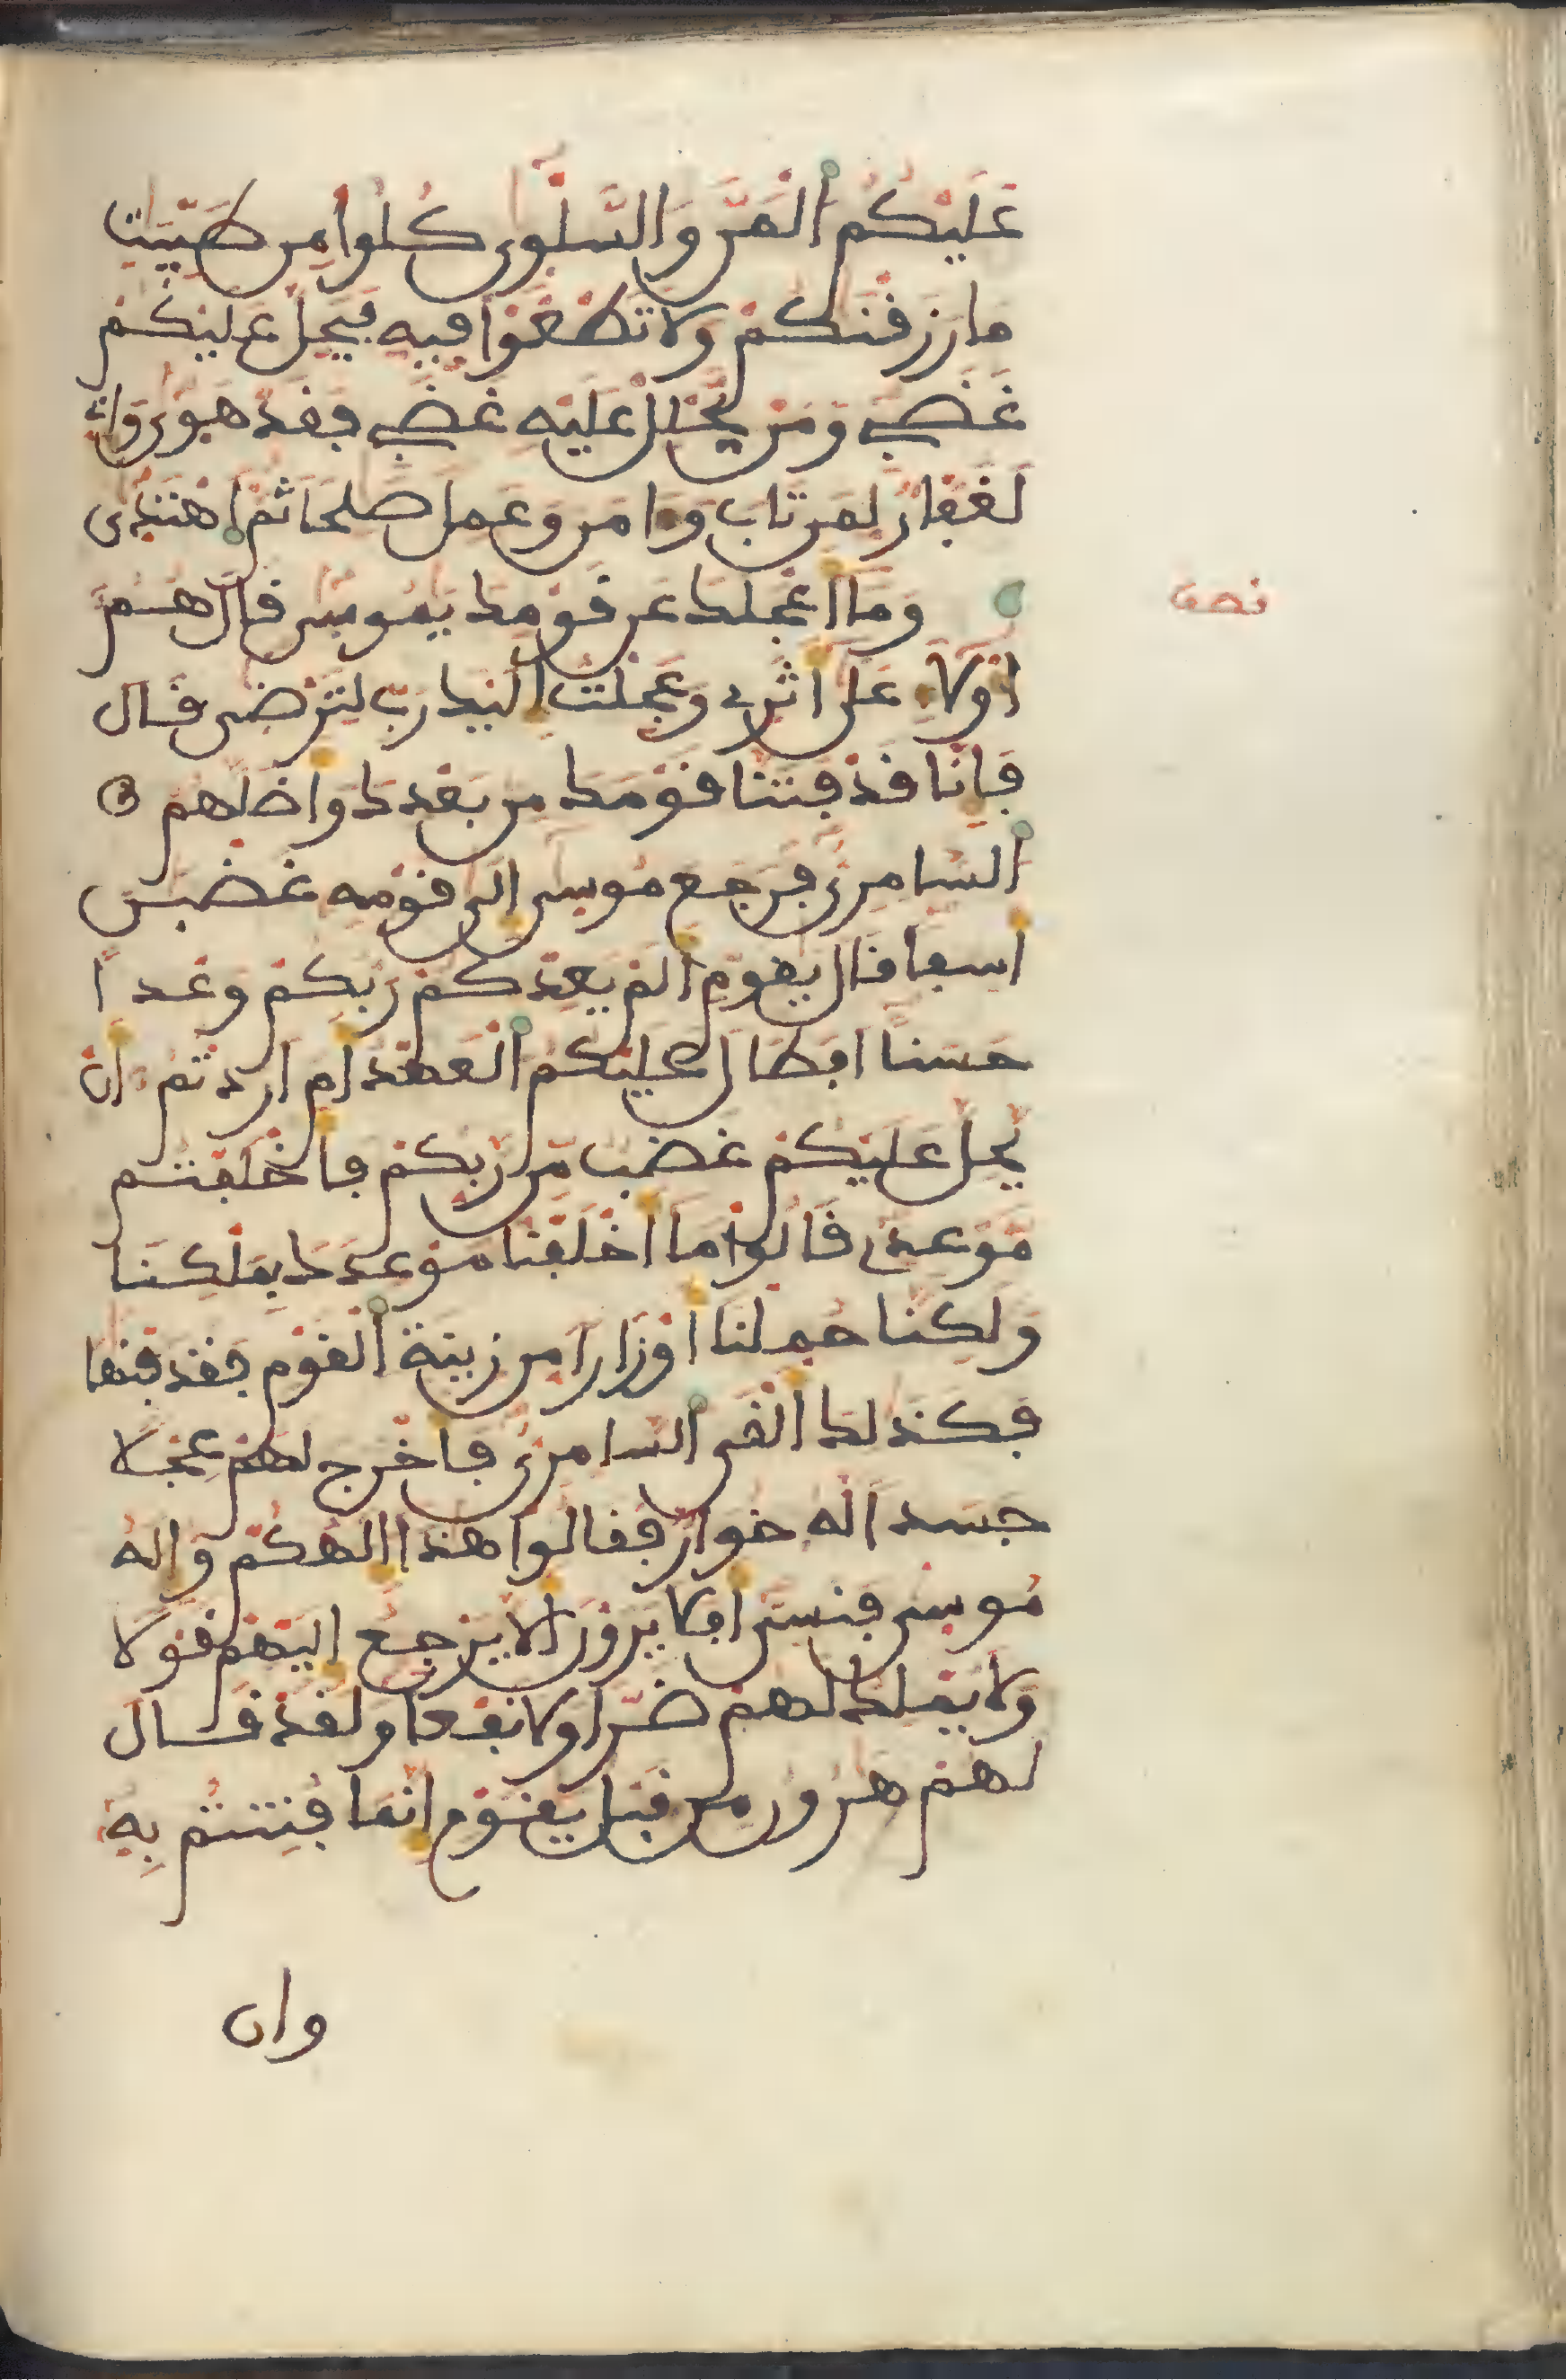 عَلَيْكُمُ الْمَنَّ وَالسَّلْوٜى كُلُوا مِن طَيِّبَٰتِ
مَا رَزَقْنَٰكُمْ وَلَا تَطْغَوْا فِيهِ فَيَحِلَّ عَلَيْكُمْ
غَضَبِے وَمَنْ يَّحْلِلْ عَلَيْهِ غَضَبِے فَقَدْ هَوٜى وَإِنِّے
لَغَفَّارٌ لِّمَن تَابَ وَءَامَنَ وَعَمِلَ صَٰلِحاً ثُمَّ اَهْتَدٜى
نصف
وَمَا أَعْجَلَكَ عَن قَوْمِكَ يَٰمُوسٜى قَالَ هُمُ
أُوْلَاءِ عَلَىٰ أَثَرِے وَعَجِلْتُ إِلَيْكَ رَبِّ لِتَرْضٜى قَالَ
فَإِنَّا قَدْ فَتَنَّا قَوْمَكَ مِن بَعْدِكَ وَأَضَلَّهُمُ
السَّامِرِيُّ فَرَجَعَ مُوسٜى إِلَىٰ قَوْمِهِ غَضْبَٰنَ
أَسِفاً قَالَ يَٰقَوْمِ أَلَمْ يَعِدْكُمْ رَبُّكُمْ وَعْداً
حَسَناً أَفَطَالَ عَلَيْكُمُ الْعَهْدُ أَمْ أَرَدتُّمْ أَنْ
يَّحِلَّ عَلَيْكُمْ غَضَبٌ مِّن رَّبِّكُمْ فَأَخْلَفْتُم
مَّوْعِدِے قَالُوا مَا أَخْلَفْنَا مَوْعِدَكَ بِمَلْكِنَا
وَلَٰكِنَّا حُمِّلْنَا أَوْزَاراً مِّن زِينَةِ الْقَوْمِ فَقَذَفْنَٰهَا
فَكَذَٰلِكَ أَلْقَى السَّامِرِيُّ فَأَخْرَجَ لَهُمْ عِجْلًا
جَسَداً لَّهُ خُوَارٌ فَقَالُوا هَٰذَا إِلَٰهُكُمْ وَإِلَٰهُ
مُوسٜى فَنَسِىَ أَفَلَا يَرَوْنَ أَلَّا يَرْجِعُ إِلَيْهِمْ قَوْلًا
وَلَا يَمْلِكُ لَهُمْ ضَرّاً وَلَا نَفْعاً وَلَقَدْ قَالَ
لَهُمْ هَٰرُونُ مِن قَبْلُ يَٰقَوْمِ إِنَّمَا فُتِنتُم بِهِ
وان